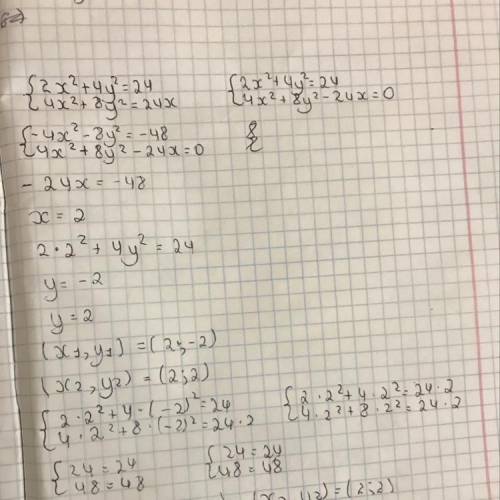 {2x²+4y²=24 {2x²+4y²=24
{4x²+8y²=24x {4x²+8y²-24x=0
{-4x²-8y²=-48
{4x²+8y²-24x=0
-24x=-48
x=2
2·2²+4y²=24
y=-2
y=2
(x1,y1)=(2;-2)
(x2,y2)=(2;2)
{2·2²+4·(-2)²=24 {2·2²+4·2²=24·2
{4·2²+8·(-2)²=24·2 {4·2²+8·2²=24·2
{24=24 {24=24
{48=48 {48=48
(x2,y2)=(2;2)